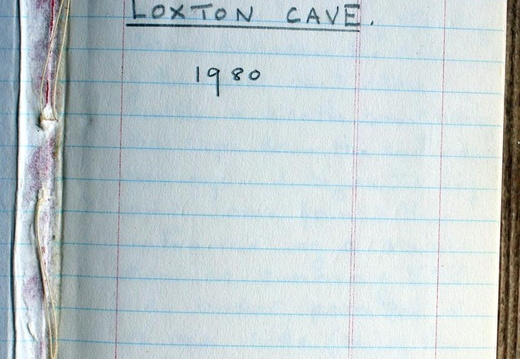 LOXTON CAVE.
1980